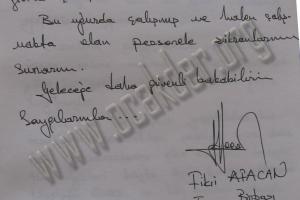 Bu uğurda çalışmış ve halen çalış-
makta olan personele şükranlarımı
sunarım.
Geleceğe daha güvenli bakabilirim
Saygılarımla ...
Fikri APACAN
www.ocakder.org